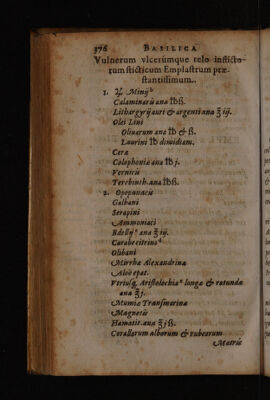 376 BASILICA
Vulnerum vlcerúmque telo inflicto-
rum sticticum Emplastrum præ-
stantissimum.
1. ℞ Minij b
Calaminaris ana ℔ß.
Lithargyrij auri & argenti ana ℥ iij.
Olei Lini
Olivarum ana ℔ & ß.
Laurini ℔ dimidiam.
Ceræ
Colophoniæ ana ℔ j.
Vernicis
Terebinth. ana ℔ß.
2. Opopanacis
Galbani
Serapini
Ammoniaci
Bdellij c ana ℥ iij.
Carabe citrino d
Olibani
Mirrhæ Alexandrinæ
Aloë epat.
Vtriusq́. Aristolochiæ e longæ & rotundæ
ana ℥ j.
Mumiæ Transmarinæ
Magnetis
Hæmatit. ana ℥ j ß.
Corallorum alborum & rubeorum
Matris